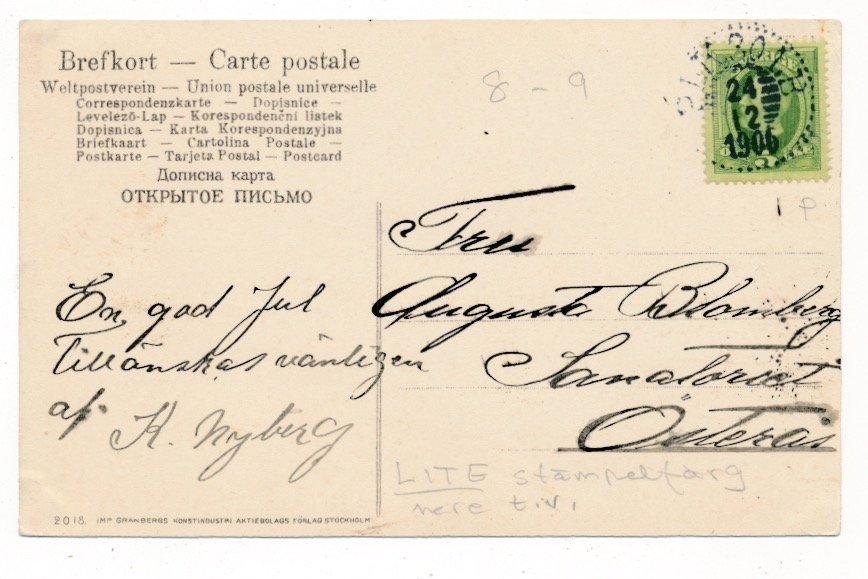 Brefkort — Carte postale
Weltpostverein — Union postale universelle
Correspondenzkarte — Dopisnice —
Levelező-Lap — Korespondenční listek
Dopisnica — Karta Korespondenzyjna
Briefkaart — Cartolina Postale —
Postkarte — Tarjeta Postal — Postcard
Дописна карта
ОТКРЫТОЕ ПИСЬМО
8 - 9
24
12
1906
1 P
En god Jul
Tillönskas vänligen
af K. Nyberg
Fru
Augusta Blomberg
Sanatoriet
Österås
LITE stämpelfärg
nere t.v.
2018. IMP GRANBERGS KONSTINDUSTRI AKTIEBOLAGS FÖRLAG STOCKHOLM